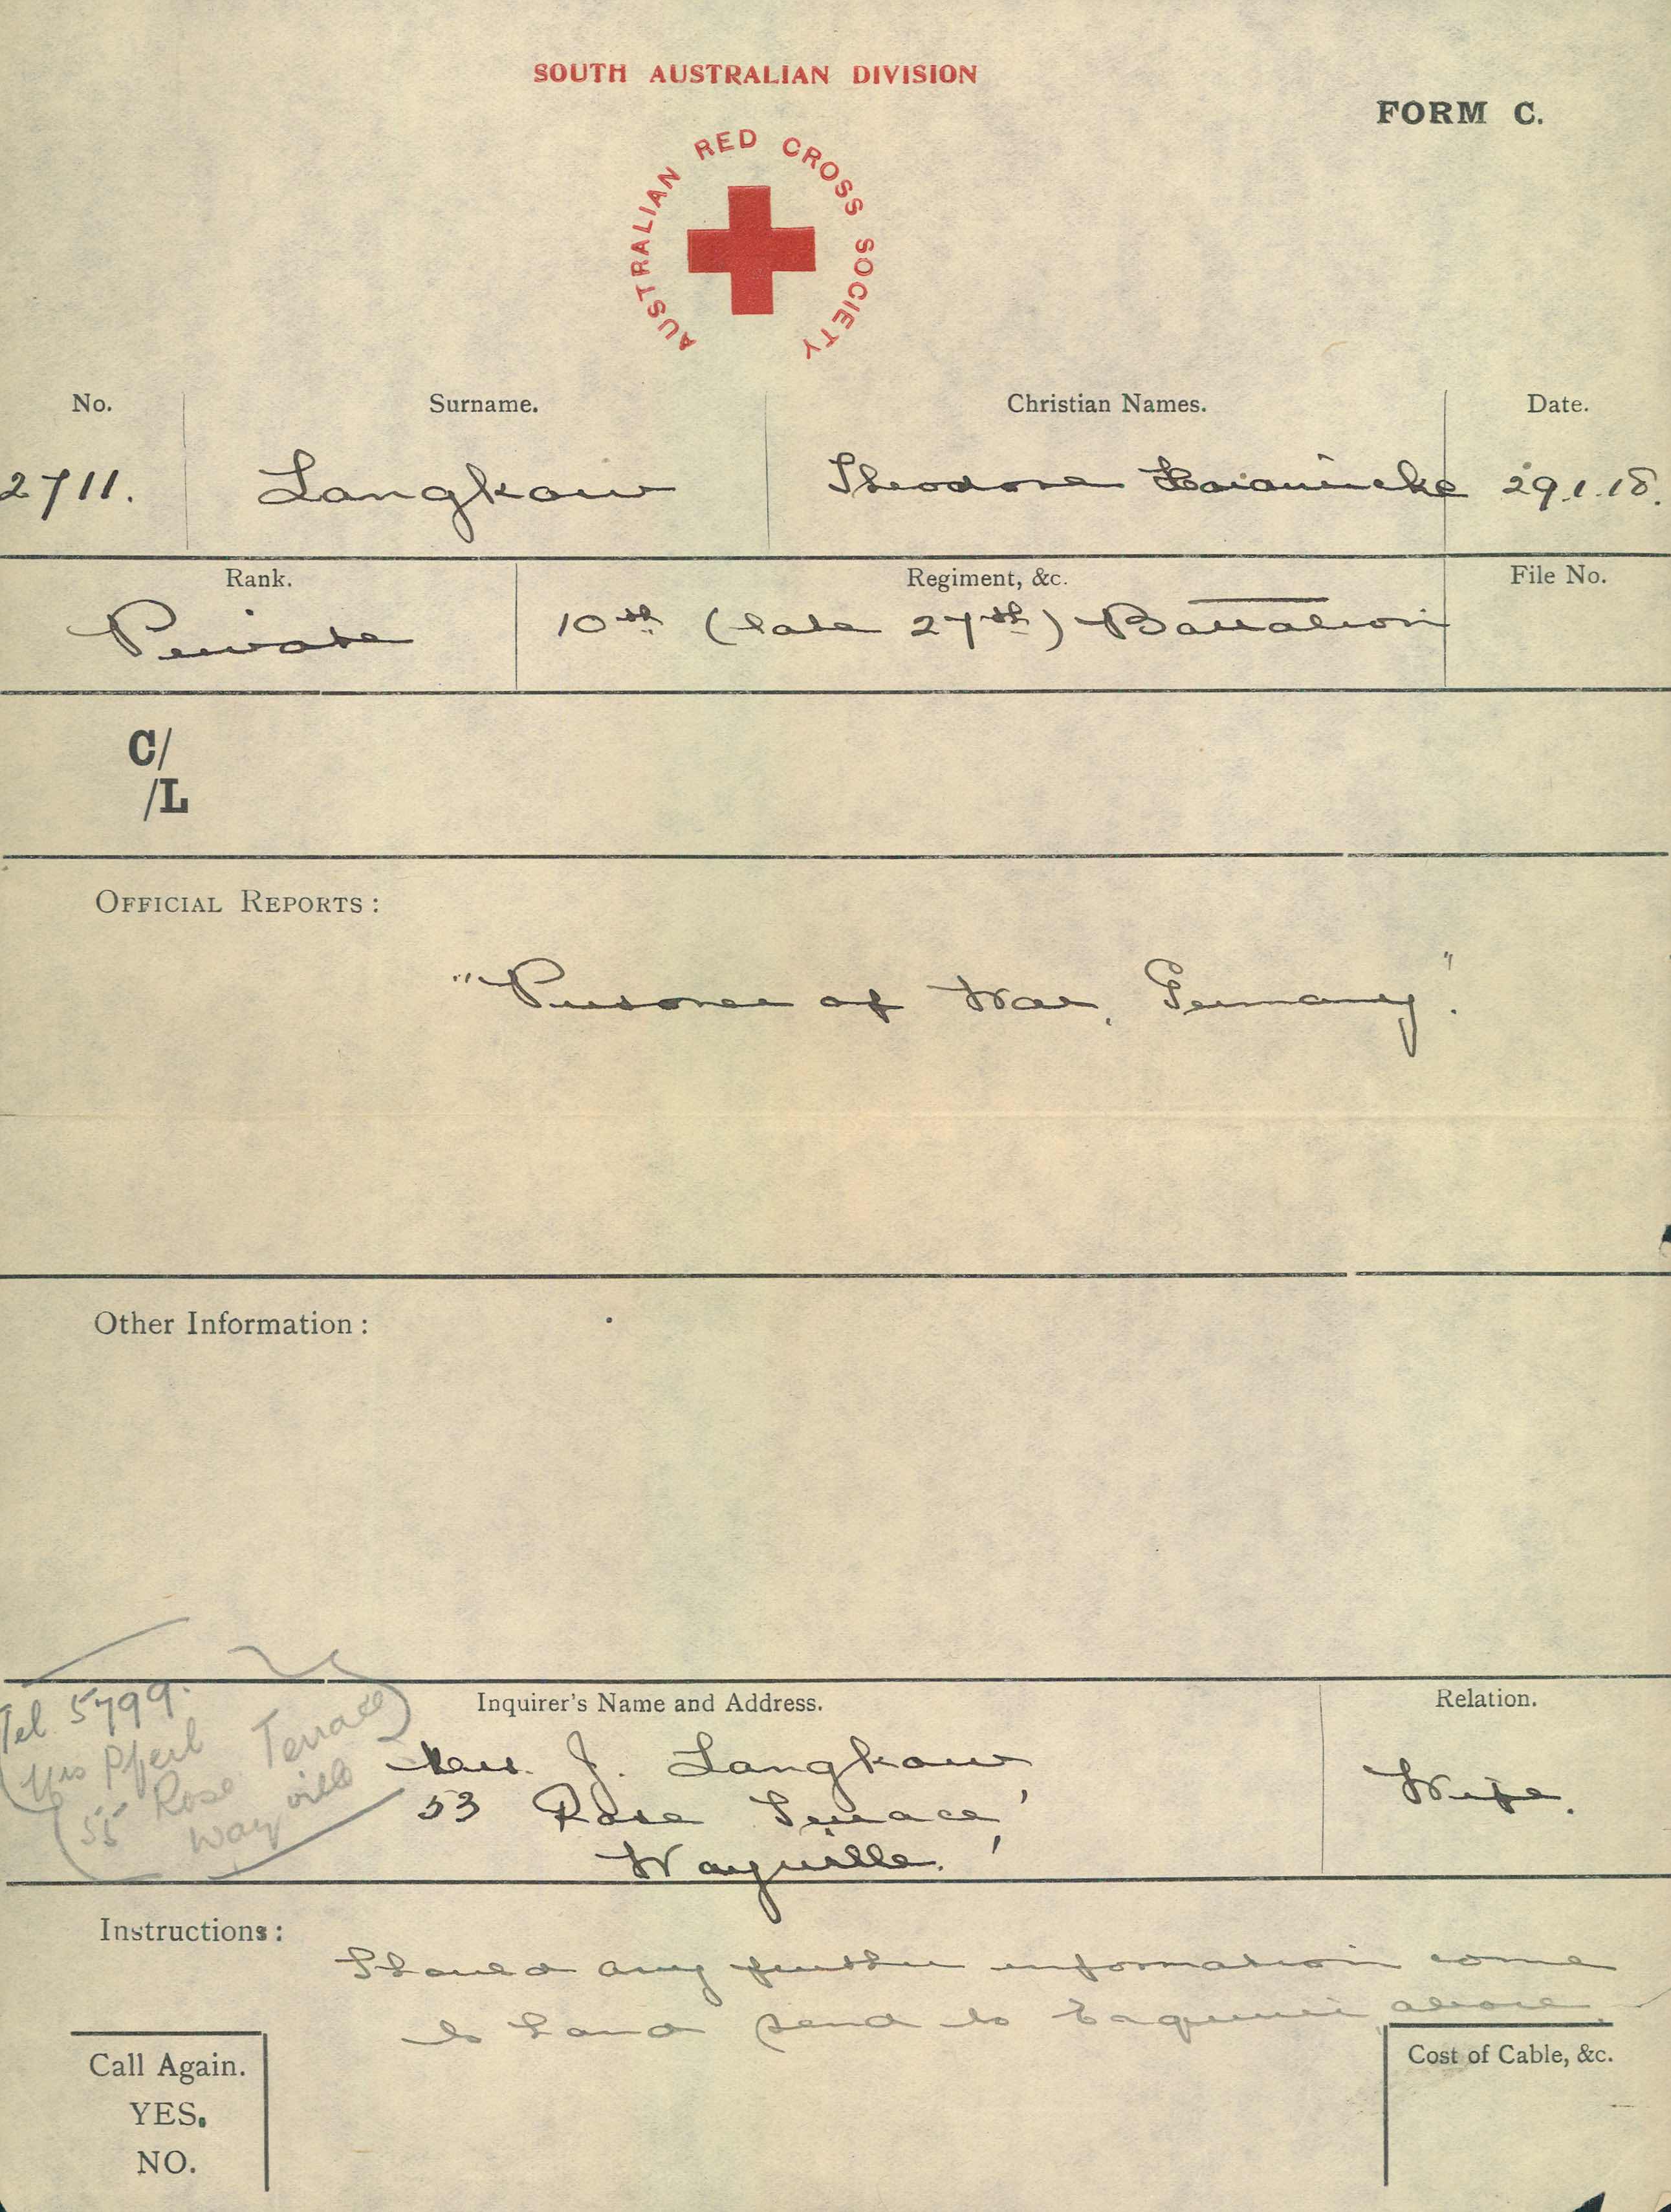 SOUTH AUSTRALIAN DIVISION
FORM C.
AUSTRALIAN RED CROSS SOCIETY
No. Surname. Christian Names. Date.
2711. Langkow Theodore 29.1.18.
Rank. Regiment, &c. File No.
Private 10th (late 27th) Battalion
C/
/L
OFFICIAL REPORTS:
"Prisoner of War, Germany".
Other Information:
Tel. 5799.
Mrs Pfeil
55 Rose Terrace
Wayville
Inquirer's Name and Address. Relation.
Mrs. J. Langkow Wife.
53 Rose Terrace,
Wayville.
Instructions:
Should any further information come
to hand send to Enquirer above.
Call Again.
YES.
NO.
Cost of Cable, &c.